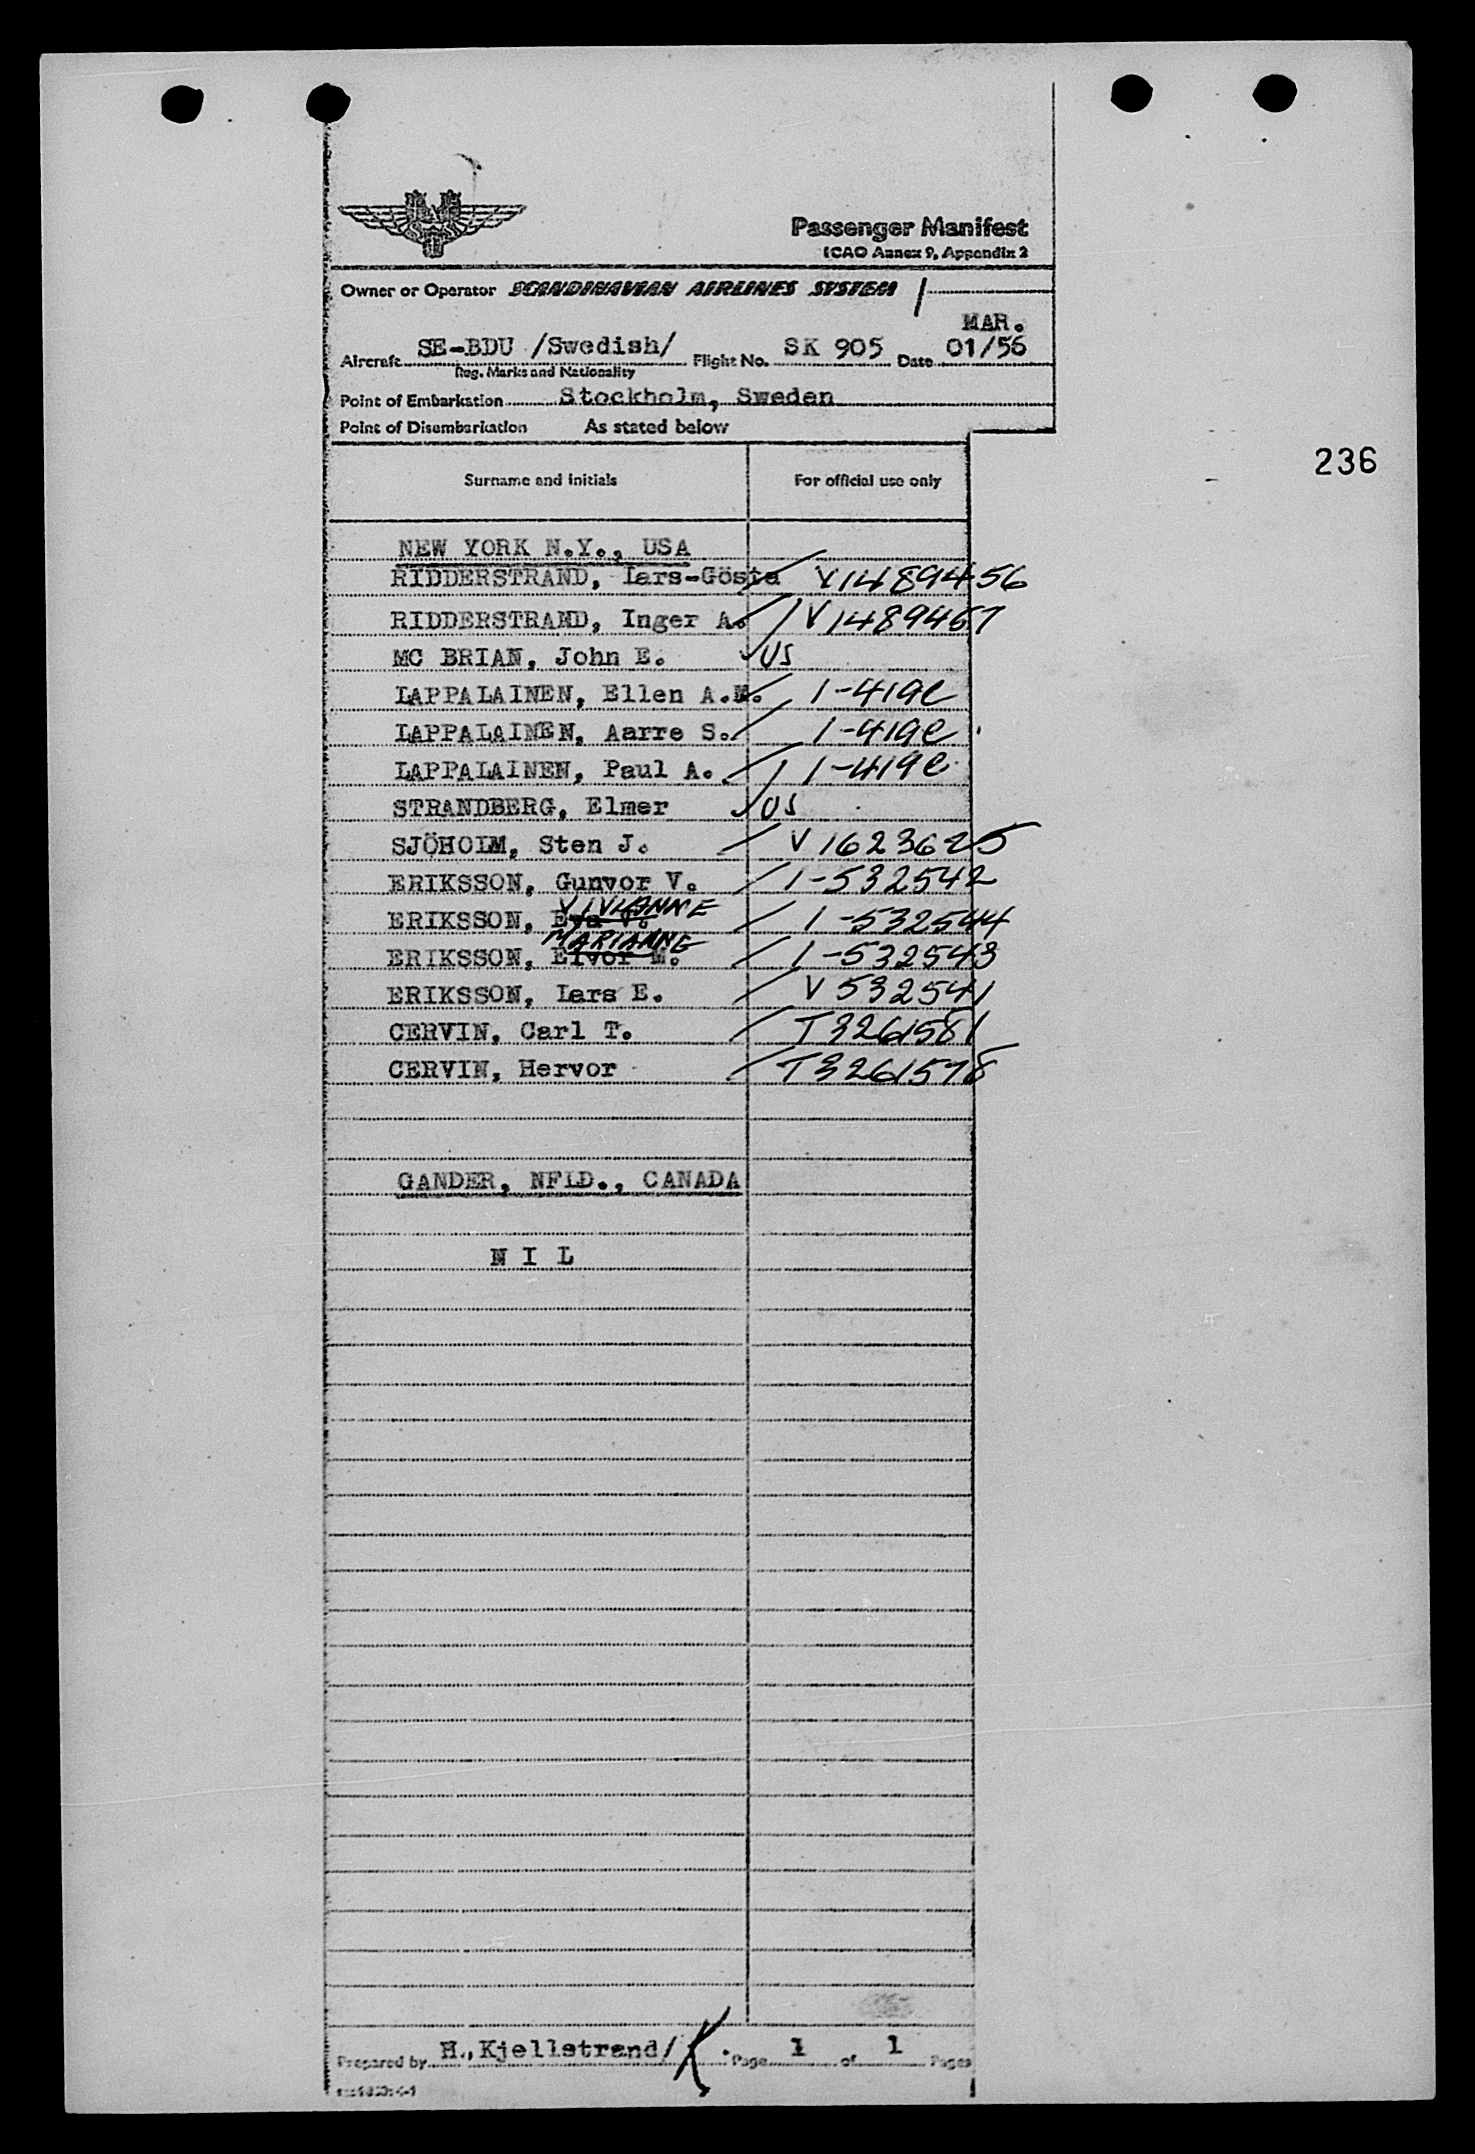 Passenger Manifest
ICAO Annex 9, Appendix 2
Owner or Operator SCANDINAVIAN AIRLINES SYSTEM
MAR.
Aircraft SE-BDU /Swedish/ Flight No. SK 905 Date 01/56
Reg. Marks and Nationality
Point of Embarkation Stockholm, Sweden
Point of Disembarkation As stated below
236
Surname and initials For official use only
NEW YORK N.Y., USA
RIDDERSTRAND, Lars-Gösta V1489456
RIDDERSTRAND, Inger A. V1489457
MC BRIAN, John E. US
LAPPALAINEN, Ellen A.M. 1-419e
LAPPALAINEN, Aarre S. 1-419e
LAPPALAINEN, Paul A. 1-419e
STRANDBERG, Elmer US
SJÖHOLM, Sten J. V1623625
ERIKSSON, Gunvor V. 1-532542
VIVIANNE
ERIKSSON, Eva V. 1-532544
MARIANNE
ERIKSSON, Elvor M. 1-532543
ERIKSSON, Lars E. V532541
CERVIN, Carl T. T3261581
CERVIN, Hervor T3261578
GANDER, NFLD., CANADA
N I L
Prepared by H. Kjellstrand/K. Page 1 of 1 Pages